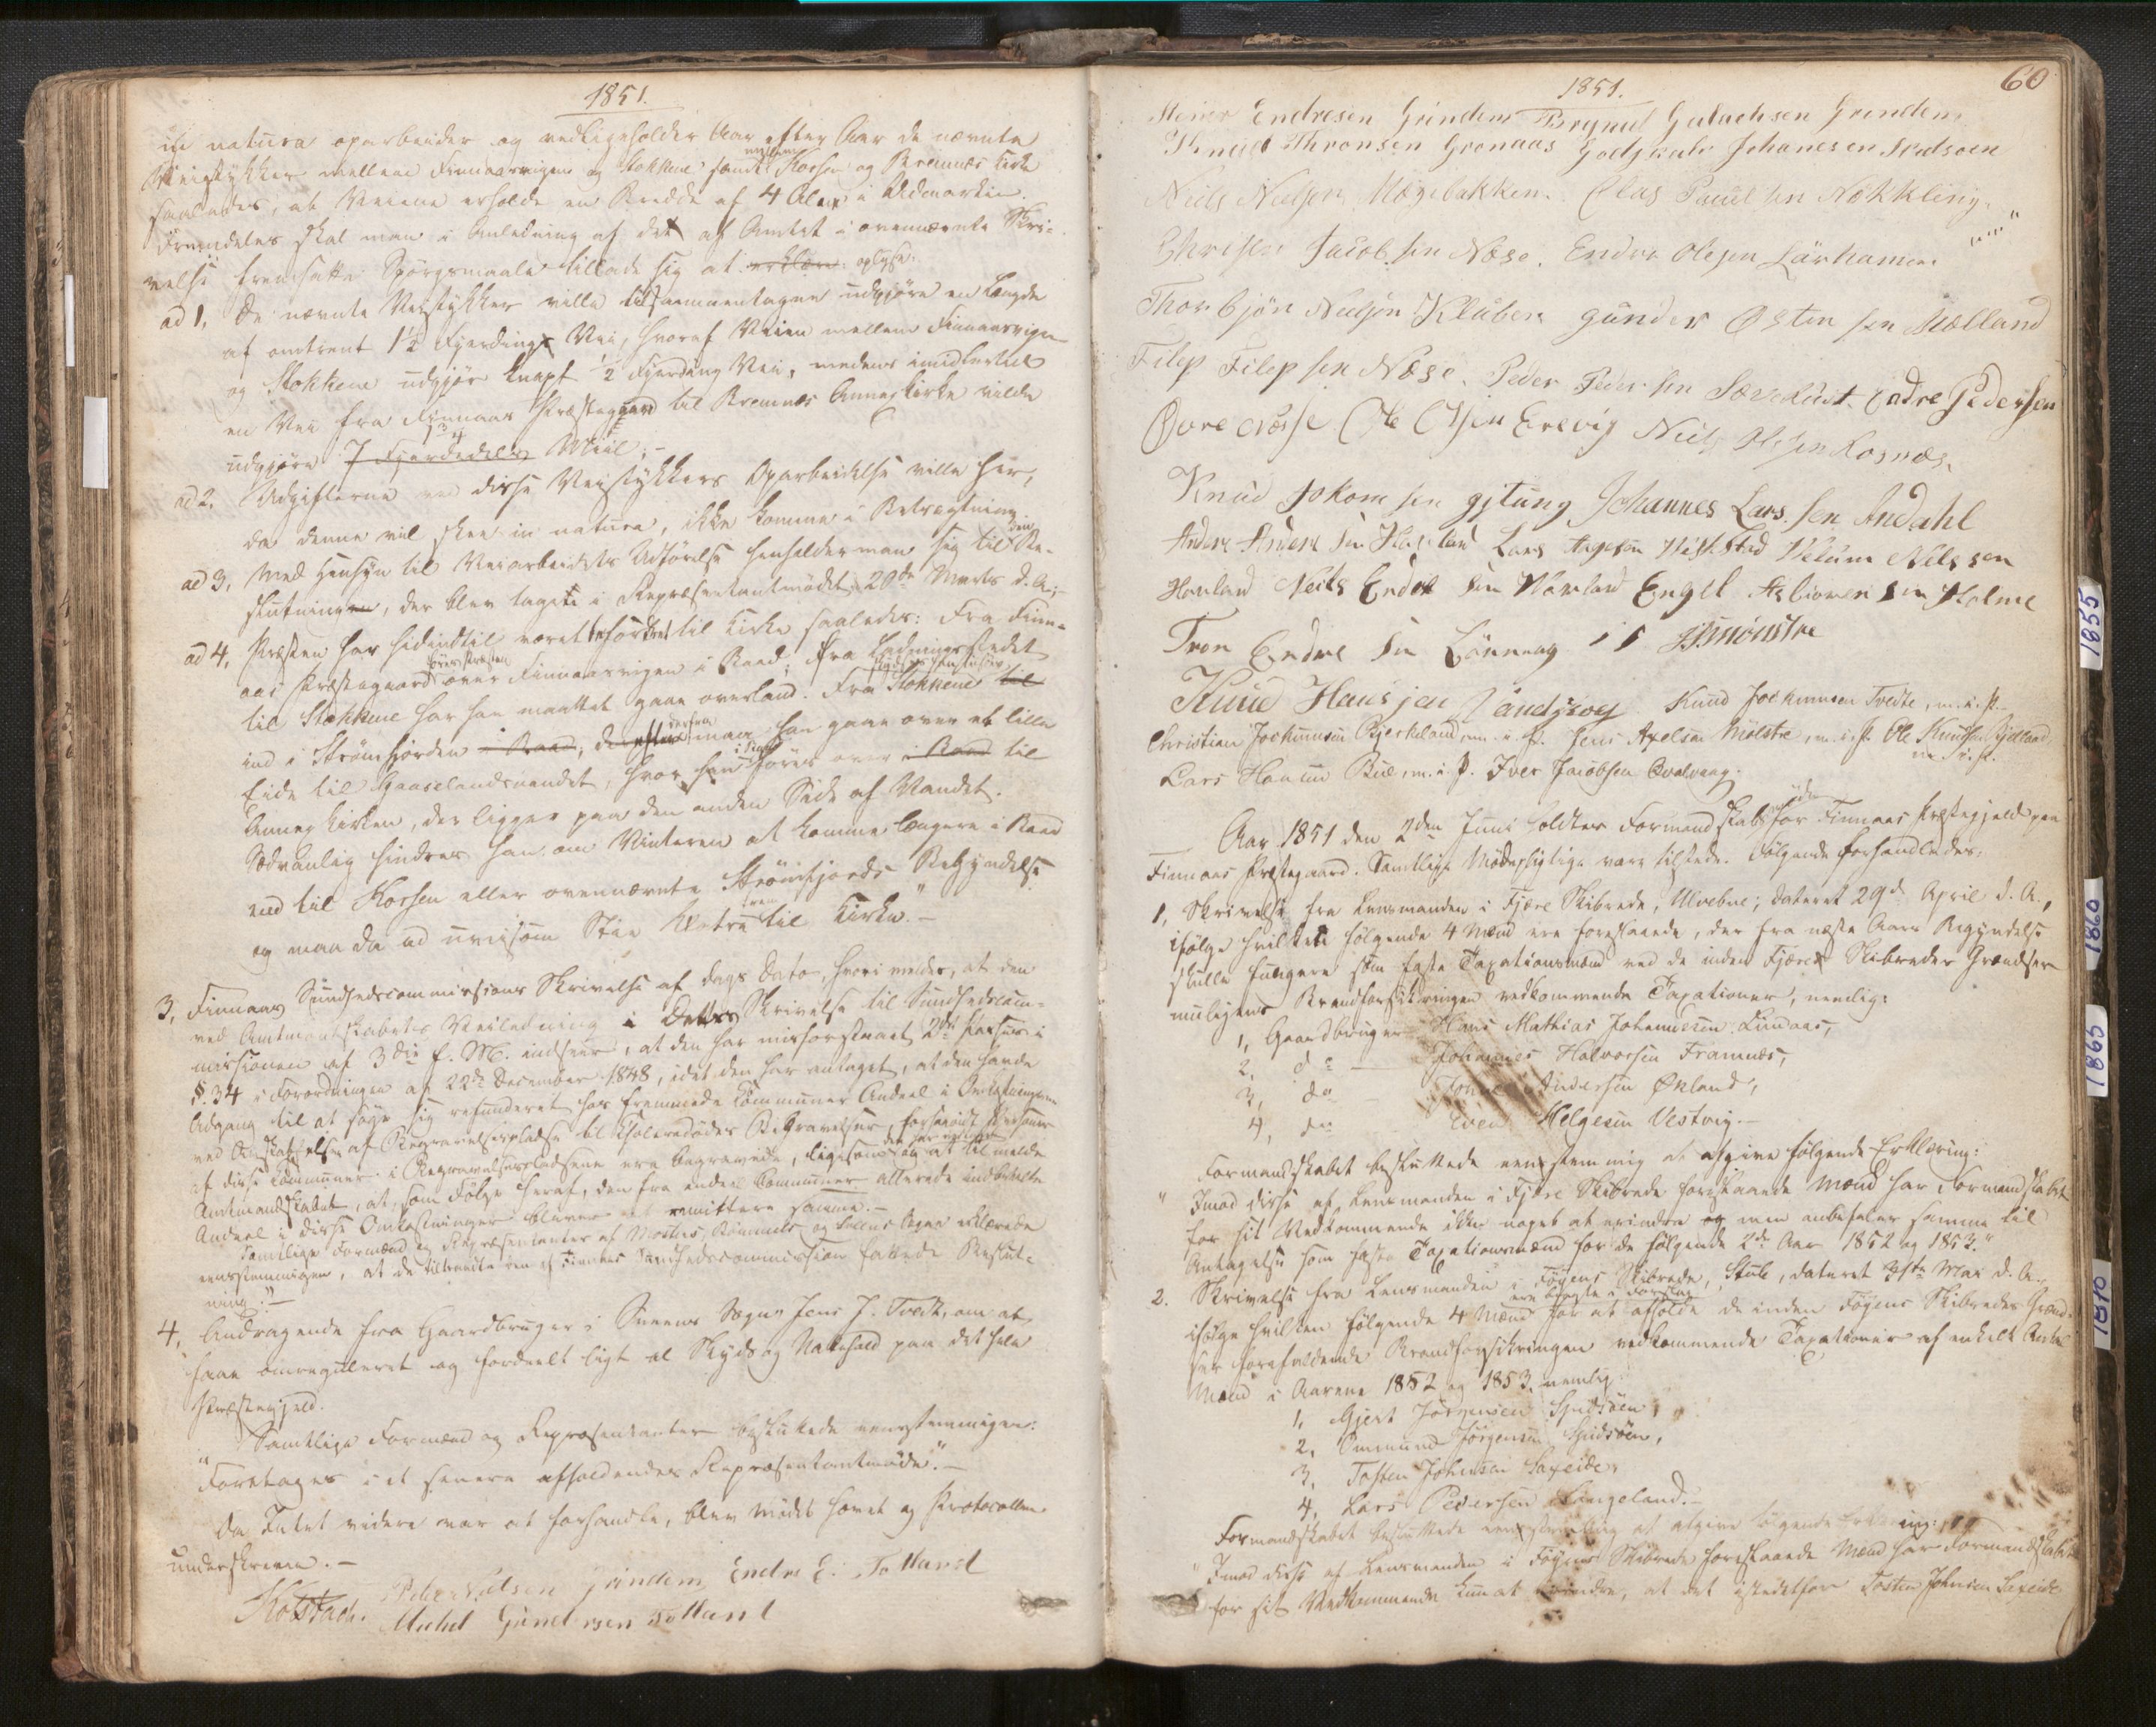 1851.
in natura oparbeider og vedligeholder Aar efter Aar de nævnte
Veistykker mellem Finnaasvigen og Stokkene samt mellem Korsen og Bremnæs Kirke
saaledes, at Veiene erholde en Bredde af 4 Alen i Udmarken.
Fremdeles skal man i Anledning af det af Amtet i ovennævnte Skri-
velse fremsatte Spørgsmaale tillade sig at erklære oplyse:
ad 1, De nævnte Veistykker ville tilsammentagne udgjøre en Længde
af omtrent 1½ Fjerding Vei, hvoraf Veien mellem Finnaasvigen
og Stokkene udgjør knapt ½ Fjerding Vei, medens imidlertid
en Vei fra Finnaas Præstegaard til Bremnæs Annexkirke vilde
udgjøre 7 Fjerdedels 1¾ Miil;-
ad 2. Udgifterne ved disse Veistykkers Oparbeidelse ville her,
da denne vil skee in natura, ikke komme i Betragtning.
ad 3, Med Hensyn til Veiarbeidets Udførelse henholder man sig til den Be-
slutning, der blev tagen i Repræsentantmødet 20de Marts d. A;-
ad 4, Præsten har hidindtil været befordret til Kirke saaledes: Fra Finn-
aas Præstegaard føres Præsten over Finnaasvigen i Baad; fra Ladningsstedet
til Stokkene har han maattet gaae overland. Fra Stokkene til
ind i Strømfjorden i Baad, derfra maa han gaae over et lille
Eide til Gaaselandsvandet, hvor han i Regel føres over i Baad til
Annexkirken, der ligger paa den anden Side af Vandet.
Sædvanlig hindres han om Vinteren at komme længere i Baad
end til Korsen eller ovennævnte Strømfjords Begyndelse
og maa da ad uveisom Stie til Kirke."-
3, Finnaas Sundhedscommissions Skrivelse af Dags Dato, hvori meldes, at den
ved Amtmandskabets Veiledning i Dettes Skrivelse til Sundhedscom-
missionen af 3die f. M. indseer, at den har misforstaaet 2det Passus i
§. 34 i Forordningen af 22de December 1848, idet den har antaget, at den havde
Adgang til at søge sig refunderet hos fremmede Communer Andeel i Omkostningerne
ved Anskaffelse af Begravelsesplads til Choleradødes Begravelser, forsaavidt Personer
af disse Communer i Begravelsespladsene ere begravede, ligesom at til melde
Amtmandskabet, at, som Følge heraf, den fra endeel Communer allerede indbetalte
Andeel i disse Omkostninger bliver at remittere samme.-
Samtlige Formænd og Repræsentanter af Mosters, Bømmels og Sveens Sogne erklærede
eensstemmigen, at de tiltraadte den af Finnaas Sundhedscommission fattede Beslut-
ning."-
4, Andragende fra Gaardbruger i Sveens Sogn Jens J. Tvedt, om at
faae omreguleret og fordeelt ligt al Skyds og Nattehold paa det hele
Præstegjeld.
Samtlige Formænd og Repræsentanter besluttede eensstemmigen:
"Foretages i et senere afholdendes Repræsentantmøde."-
Da Intet videre var at forhandle, blev Mødet hævet og Protocollen
underskreven.-
Kolstad. Peder Nilsen Grindem Endre E: Tolland
Michel Gundersen Tolland
60
1851.
Steiner Endresen Grindem Brynild Gulachsen Grindem
Knud Thronsen Grønaas Godskalk Johanesen Spidsøen
Niels Nielsen Hægebakken. Clas Paulsen Nøkkling
Christen Jacobsen Næse. Endre Olesen Lärhamer
Thorbjön Nielsen Kluben gunder Østensen Mælland
Filep Filepsen Næse. Peder Pedersen Endre Pedersen
Øvrenæsse Ole Olsen Erevig Niels Olsen Rosnæs
Knud Jokomsen gjtung Johannes Larssen Andahl
Anders Anderssen Lars Aagesen Nilssen
Havland Neils Endresen Havland Engel Holme
Tron Endresen Lönning
Knud Hansen Sandsvog Knud Jochumsen Tvedte, m. i. P.
Christian Jochumsen Bjerkeland, m. i. P. Jens Axelsen Mølstre, m. i. P. Ole Knudsen Gjelland, m. i. P.
Lars Hansen Bue, m. i. P. Iver Jacobsen Qvalvaag.
Aar 1851 den 2den Juni holdtes Formandskabsmøde for Finnaas Præstegjeld paa
Finnaas Præstegaard. Samtlige Mødepligtige vare tilstede. Følgende forhandledes:
1, Skrivelse fra Lensmanden i Fjære Skibrede, Ulvebne, dateret 29de April d. A.,
ifølge hvilken følgende 4 Mænd ere foreslaaede, der fra næste Aars Begyndelse
skulle fungere som faste Taxationsmænd ved de inden Fjære Skibredes Grændser
muligens Brandforsikringen vedkommende Taxationer, nemlig:
1, Gaardbruger Hans Mathias Johannesen Lindaas,
2, do - Johannes Halvorsen Framnæs,
3, do Johannes Andersen Økland,
4, do Even Helgesen Vestvig.-
Formandskabet besluttede eenstemmig at afgive følgende Erklæring:
"Imod disse af Lensmanden i Fjære Skibrede foreslaaede Mænd har Formandskabet
for sit Vedkommende ikke noget at erindre og men anbefaler samme til
Antagelse som faste Taxationsmænd for de følgende 2de Aar 1852 og 1853."
2. Skrivelse fra Lensmanden i Føyens Skibrede, Stub, dateret 31te Mai d. A.,
ifølge hvilken følgende 4 Mænd ere bragte i Forslag for at afholde de inden Føyens Skibredes Grænd-
ser forefaldende Brandforsikringen vedkommende Taxationer af enkelt Antal
Mænd i Aarene 1852 og 1853, nemlig
1, Gjert Jørgensen Spidsøen,
2, Ommund Jørgensen Spidsøen,
3, Tosten Johnsen Saxeide,
4, Lars Pedersen Langeland.-
Formandskabet besluttede eenstemmig at afgive følgende Erklæring:
"Imod disse af Lensmanden i Føyens Skibrede foreslaaede Mænd har Formandskabet
for sit Vedkommende kun at erindre, at det istedetfor Tosten Johnsen Saxeide
1855
1860
1865
1870